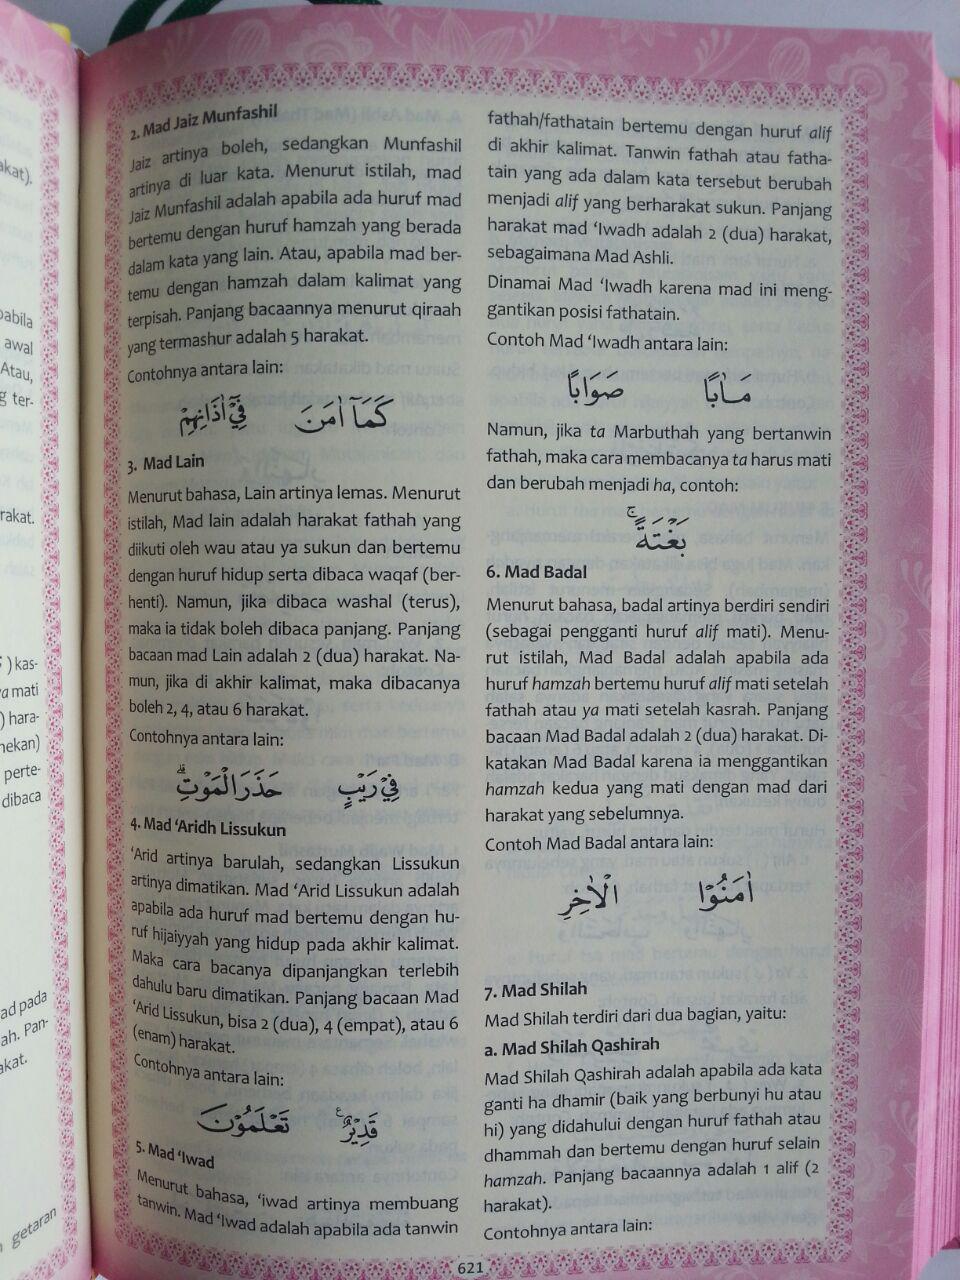 akat).
pabila
awal
Atau,
g ter-
rakat.
) kas-
ya mati
) hara-
nekan)
perte-
dibaca
ad pada
ah. Pan-
akat.
getaran
2. Mad Jaiz Munfashil
Jaiz artinya boleh, sedangkan Munfashil
artinya di luar kata. Menurut istilah, mad
Jaiz Munfashil adalah apabila ada huruf mad
bertemu dengan huruf hamzah yang berada
dalam kata yang lain. Atau, apabila mad ber-
temu dengan hamzah dalam kalimat yang
terpisah. Panjang bacaannya menurut qiraah
yang termashur adalah 5 harakat.
Contohnya antara lain:
كَمَآ اٰمَنَ فِيْٓ اٰذَانِهِمْ
3. Mad Lain
Menurut bahasa, Lain artinya lemas. Menurut
istilah, Mad lain adalah harakat fathah yang
diikuti oleh wau atau ya sukun dan bertemu
dengan huruf hidup serta dibaca waqaf (ber-
henti). Namun, jika dibaca washal (terus),
maka ia tidak boleh dibaca panjang. Panjang
bacaan mad Lain adalah 2 (dua) harakat. Na-
mun, jika di akhir kalimat, maka dibacanya
boleh 2, 4, atau 6 harakat.
Contohnya antara lain:
فِيْ رَيْبٍ حَذَرَ الْمَوْتِۗ
4. Mad ‘Aridh Lissukun
‘Arid artinya barulah, sedangkan Lissukun
artinya dimatikan. Mad ‘Arid Lissukun adalah
apabila ada huruf mad bertemu dengan hu-
ruf hijaiyyah yang hidup pada akhir kalimat.
Maka cara bacanya dipanjangkan terlebih
dahulu baru dimatikan. Panjang bacaan Mad
‘Arid Lissukun, bisa 2 (dua), 4 (empat), atau 6
(enam) harakat.
Contohnya antara lain:
قَدِيْرٌ تَعْلَمُوْنَ
5. Mad ‘Iwad
Menurut bahasa, ‘iwad artinya membuang
tanwin. Mad ‘Iwad adalah apabila ada tanwin
fathah/fathatain bertemu dengan huruf alif
di akhir kalimat. Tanwin fathah atau fatha-
tain yang ada dalam kata tersebut berubah
menjadi alif yang berharakat sukun. Panjang
harakat mad ‘Iwadh adalah 2 (dua) harakat,
sebagaimana Mad Ashli.
Dinamai Mad ‘Iwadh karena mad ini meng-
gantikan posisi fathatain.
Contoh Mad ‘Iwadh antara lain:
مَـاٰبًا صَوَابًا
Namun, jika ta Marbuthah yang bertanwin
fathah, maka cara membacanya ta harus mati
dan berubah menjadi ha, contoh:
بَغْتَةًۚ
6. Mad Badal
Menurut bahasa, badal artinya berdiri sendiri
(sebagai pengganti huruf alif mati). Menu-
rut istilah, Mad Badal adalah apabila ada
huruf hamzah bertemu huruf alif mati setelah
fathah atau ya mati setelah kasrah. Panjang
bacaan Mad Badal adalah 2 (dua) harakat. Di-
katakan Mad Badal karena ia menggantikan
hamzah kedua yang mati dengan mad dari
harakat yang sebelumnya.
Contoh Mad Badal antara lain:
اٰمَنُوْا الْاٰخِرِ
7. Mad Shilah
Mad Shilah terdiri dari dua bagian, yaitu:
a. Mad Shilah Qashirah
Mad Shilah Qashirah adalah apabila ada kata
ganti ha dhamir (baik yang berbunyi hu atau
hi) yang didahului dengan huruf fathah atau
dhammah dan bertemu dengan huruf selain
hamzah. Panjang bacaannya adalah 1 alif (2
harakat).
Contohnya antara lain:
621